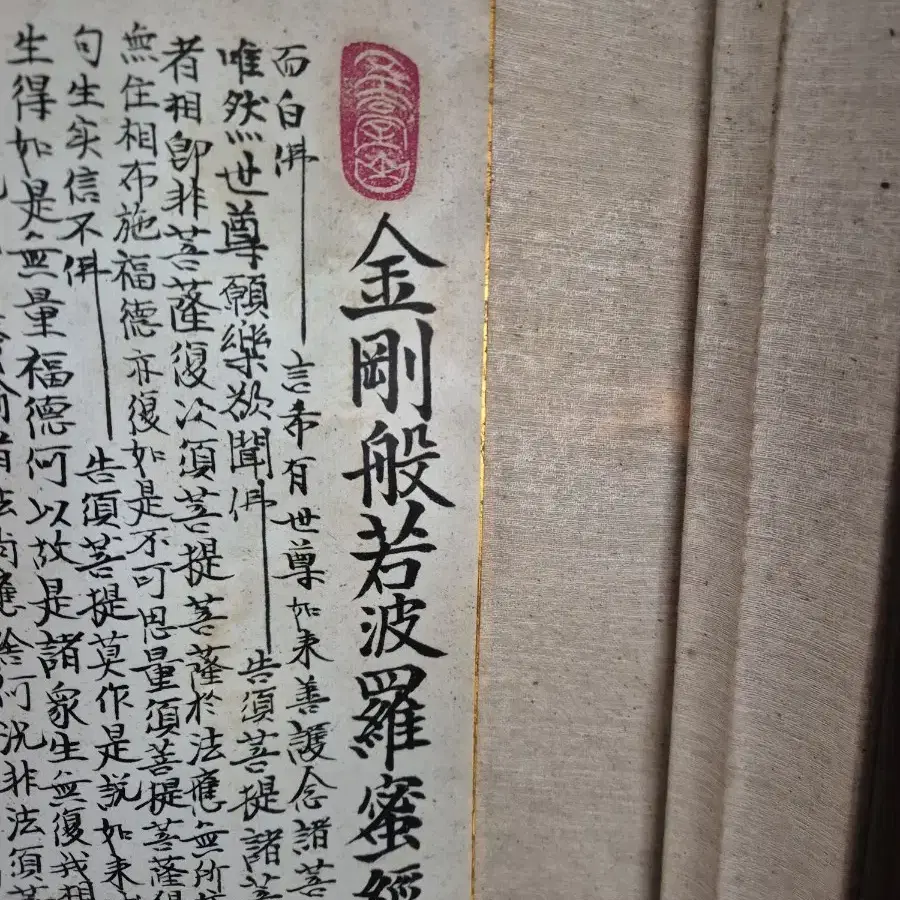 金剛般若波羅蜜經
而白佛言希有世尊如来善護念諸菩
唯然世尊願樂欲聞佛告須菩提諸菩
者相即非菩薩復次須菩提菩薩於法應無所
無住相布施福德亦復如是不可思量須菩提菩薩
句生实信不佛告須菩提莫作是說如来
生得如是無量福德何以故是諸眾生無復我相
法尚應捨何況非法須菩